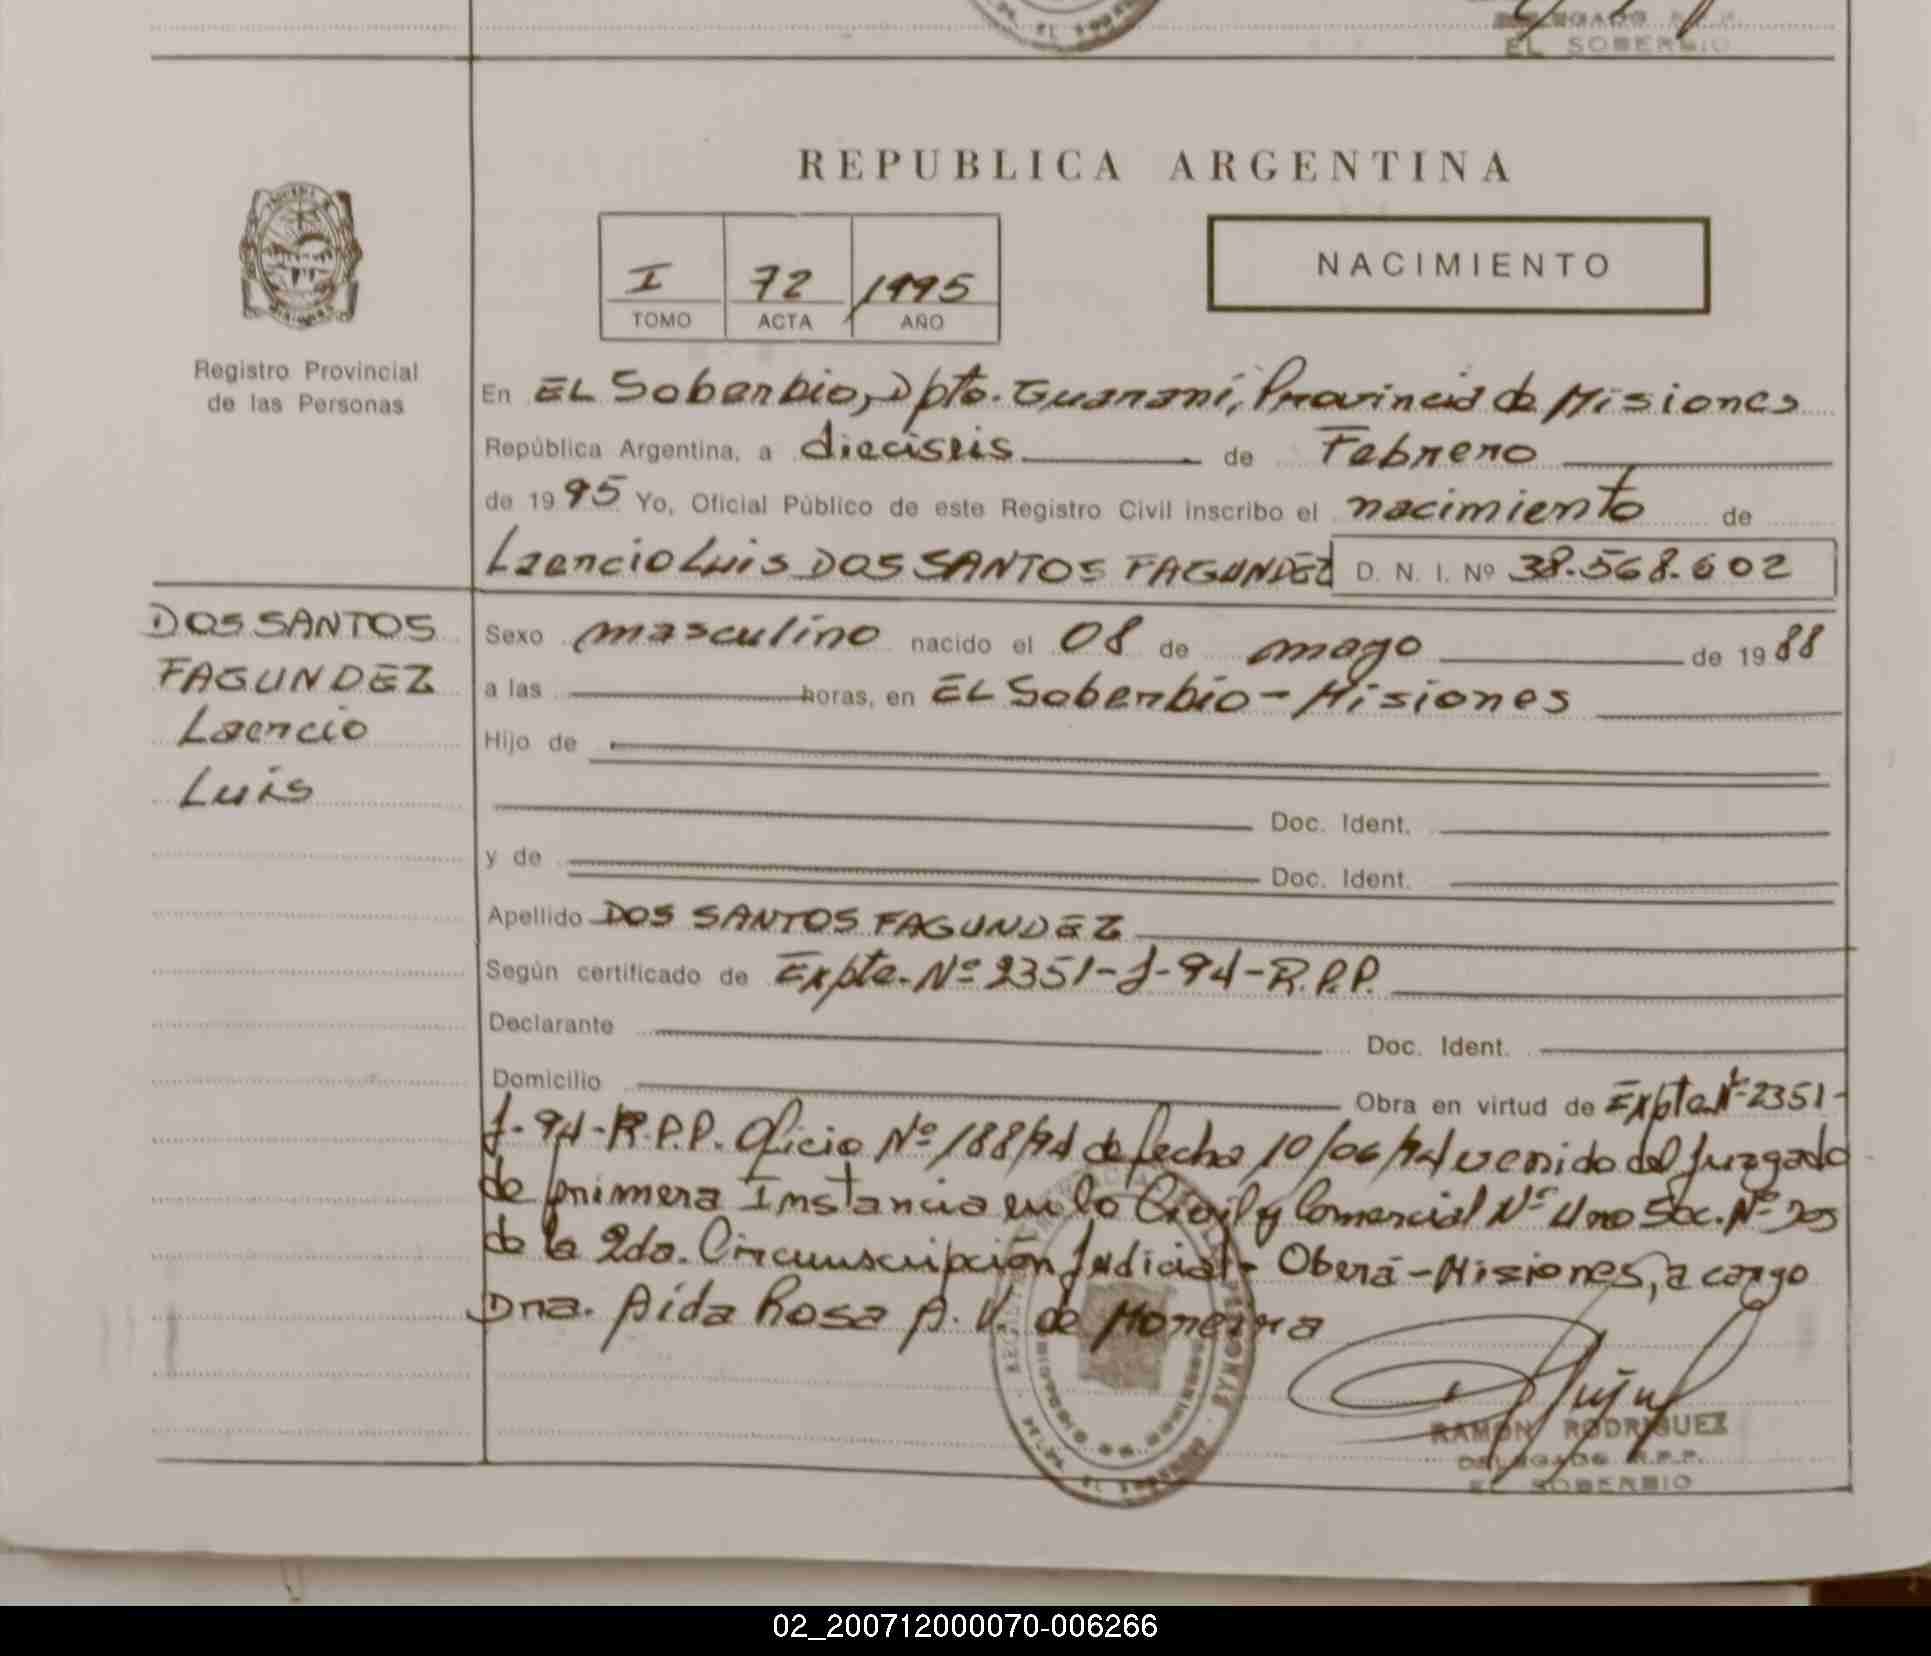 EL SOBERBIO
REPUBLICA ARGENTINA
NACIMIENTO
I 72 1995
TOMO ACTA AÑO
Registro Provincial
de las Personas
En EL Soberbio, Dpto. Guaraní, Provincia de Misiones
República Argentina, a dieciseis de Febrero
de 1995 Yo, Oficial Público de este Registro Civil inscribo el nacimiento de
Laercio Luis DOS SANTOS FAGUNDEZ D. N. I. Nº 38.568.602
DOS SANTOS
FAGUNDEZ
Laercio
Luis
Sexo masculino nacido el 08 de mayo de 1988
a las horas, en EL Soberbio - Misiones
Hijo de
Doc. Ident.
y de Doc. Ident.
Apellido DOS SANTOS FAGUNDEZ
Según certificado de Expte. Nº 2351-J-94-R.P.P.
Declarante Doc. Ident.
Domicilio Obra en virtud de Expte Nº 2351-
J-94-R.P.P. Oficio Nº 188/94 de fecha 10/06/94 venido del Juzgado
de primera Instancia en lo Civil y Comercial Nº Uno Sec. Nº Dos
de la 2da. Circunscripción Judicial - Oberá - Misiones, a cargo
Dra. Aída Rosa A. V. de
RAMON RODRIGUEZ
DELEGADO R.P.P.
EL SOBERBIO
02_200712000070-006266